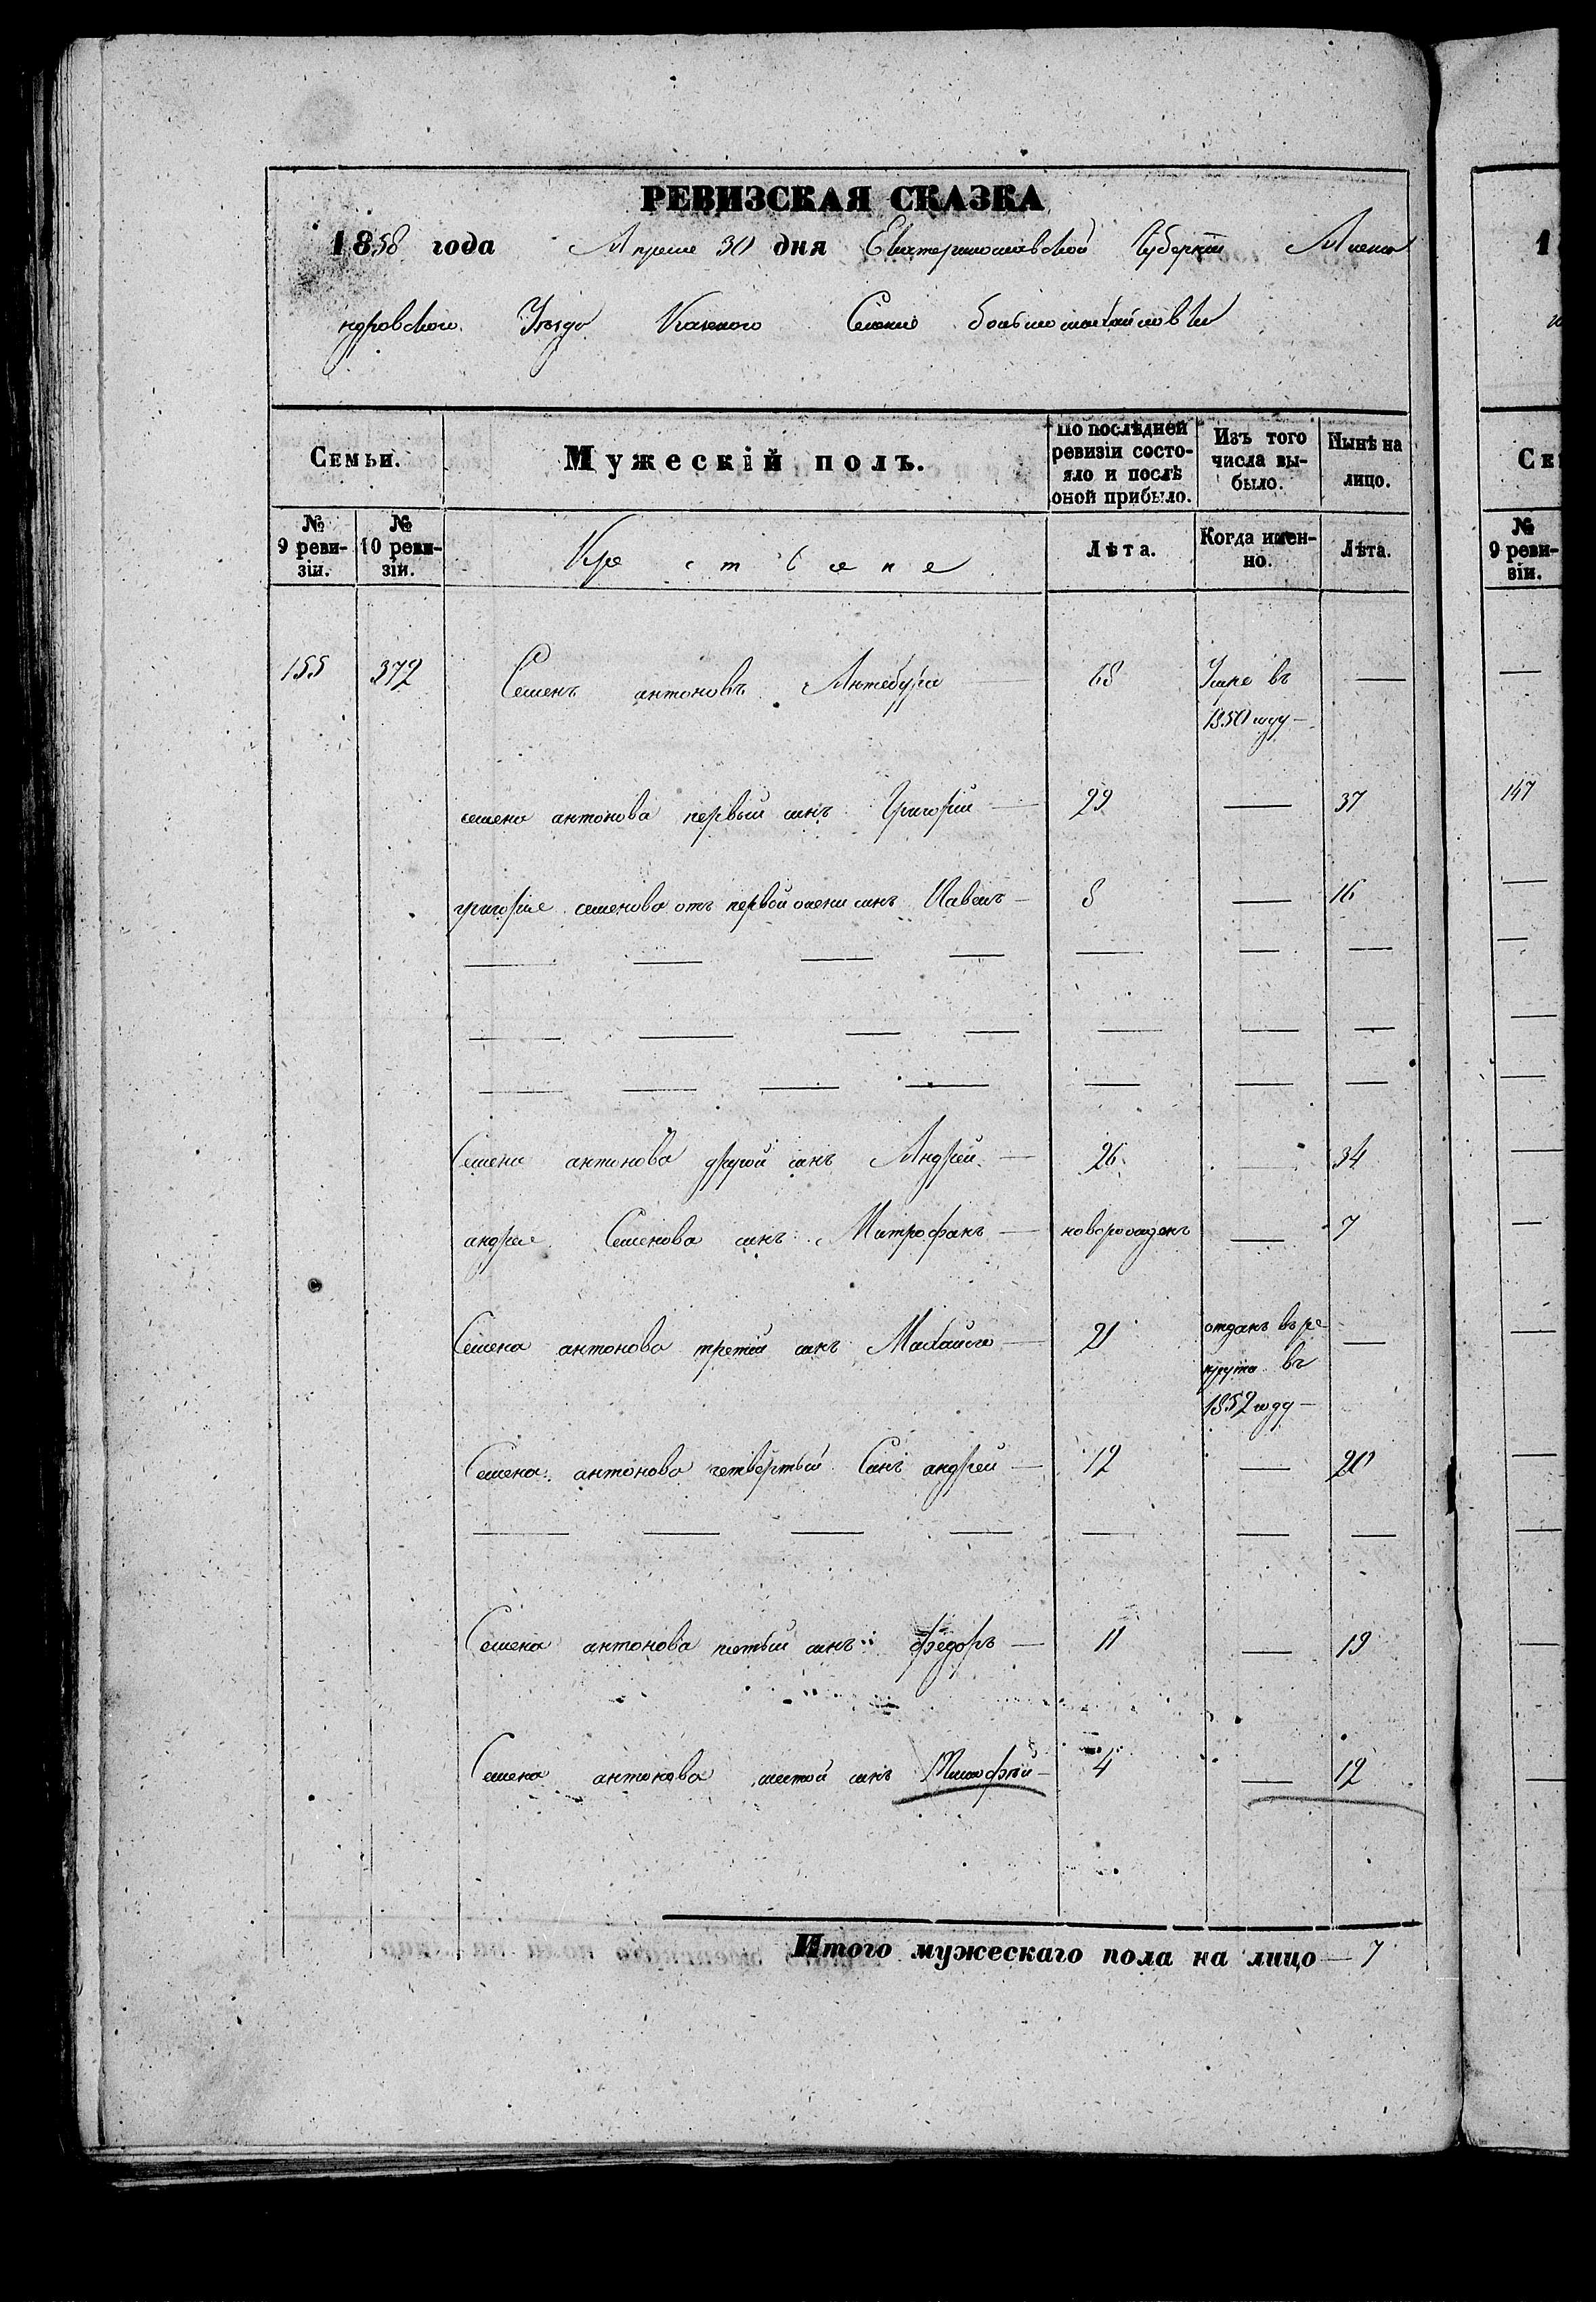 РЕВИЗСКАЯ СКАЗКА
1858 года Апреля 30 дня Екатеринославской Губернiи Алекса
ндровского Уезда Казеного Селение
Семьи. Мужескiй полъ. По послѣдней ревизiи состояло и послѣ оной прибыло. Изъ того числа выбыло. Нынѣ на лицо.
№ 9 ревизiи. № 10 ревизiи. Кре Лѣта. Когда именно. Лѣта.
155 372 Семенъ антоновъ 68 Умре въ —
1850 году —
семена антонова первый синъ Григорий — 29 — 37
григория семенова отъ первой жени синъ Павелъ — 8 — 16
Семена антонова другой синъ Андрей — 26 — 34
андрея Семенова синъ Митрофанъ — новорожденъ — 7
Семена антонова третий синъ Михайло — 21 отданъ въ ре —
крута въ
1852 году —
Семена антонова четвертый Синъ андрей — 12 — 20
Семена антонова пятый синъ федоръ — 11 — 19
Семена антонова шестой синъ Тимофѣй — 4 — 12
Итого мужескаго пола на лицо — 7
1
Се
№ 9 ревизiи.
147